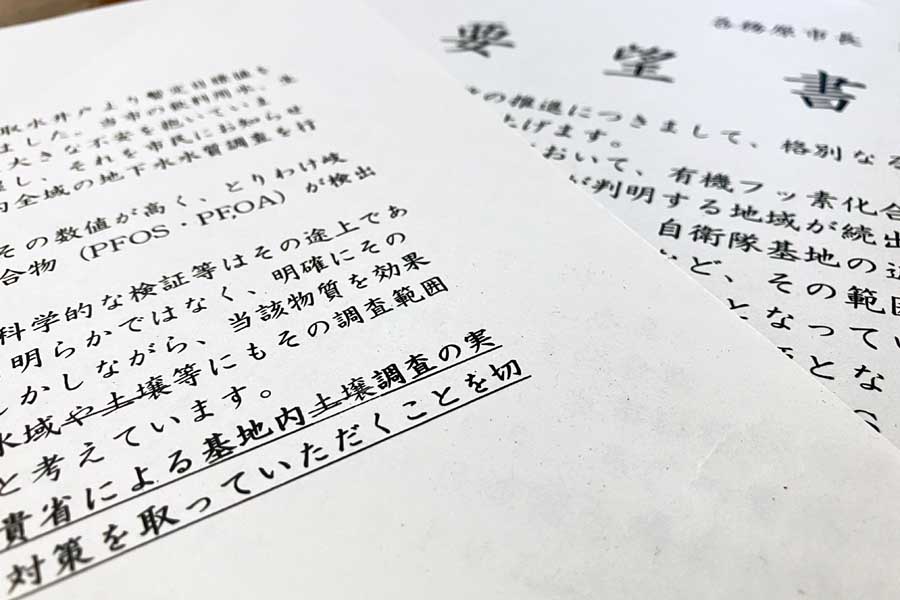 取水井戸より暫定目標値も
ました。当市の飲料用水、生
大きな不安を抱いていま
し、それを市民にお知らせ
内全域の地下水水質調査を行
その数値が高く、とりわけ岐
合物（PFOS・PFOA）が検出
科学的な検証等はその途上であ
明らかではなく、明確にその
しかしながら、当該物質を効果
水域や土壌等にもその調査範囲
と考えています。
貴省による基地内土壌調査の実
対策を取っていただくことを切
各務原市長
要望書
の推進につきまして、格別なる
上げます。
において、有機フッ素化合
が判明する地域が続出
自衛隊基地の近
など、その範囲
となってい
とな